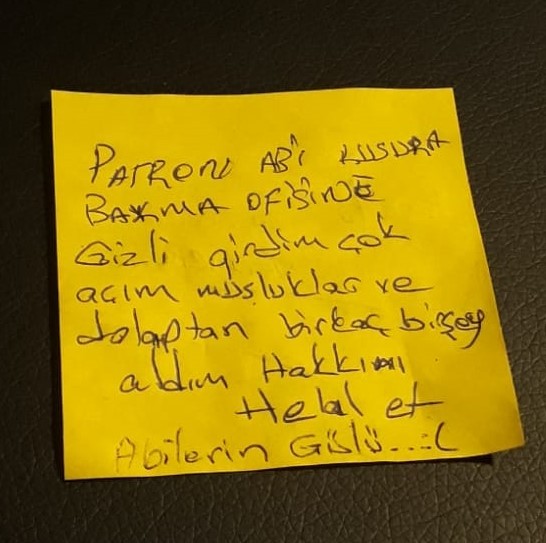 PATRON ABİ KUSURA
BAKMA OFİSİNE
Gizli girdim çok
açım musluklar ve
dolaptan birkaç birşey
aldım Hakkını
Helal et
Abilerin Güslü...:(